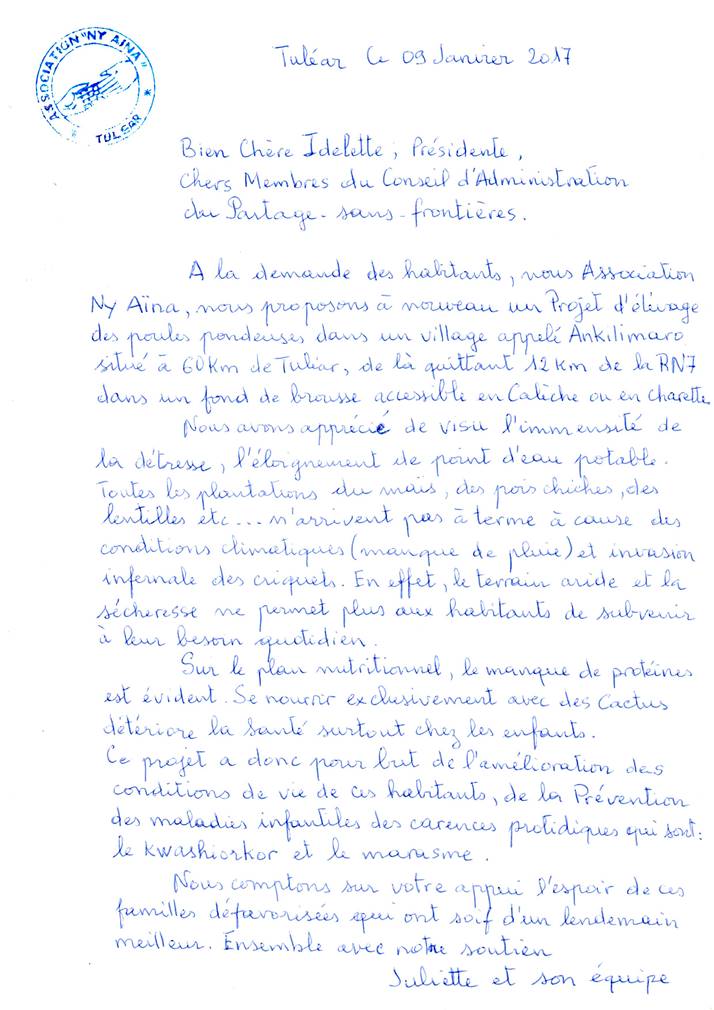 ASSOCIATION "NY AINA"
* TULEAR *
Tuléar le 09 Janvier 2017
Bien Chère Idelette, Présidente,
Chers Membres du Conseil d'Administration
du Partage-sans-frontières.
A la demande des habitants, nous Association
Ny Aïna, nous proposons à nouveau un Projet d'élévage
des poules pondeuses dans un village appelé Ankilimaro
situé à 60Km de Tuléar, de là quittant 12 Km de la RN7
dans un fond de brousse accessible en Calèche ou en charette
Nous avons apprécié de visu l'immensité de
la détresse, l'éloignement de point d'eau potable.
Toutes les plantations du maïs, des pois chiches, des
lentilles etc... n'arrivent pas à terme à cause des
conditions climatiques (manque de pluie) et invasion
infernale des criquets. En effet, le terrain aride et la
sécheresse ne permet plus aux habitants de subvenir
à leur besoin quotidien.
Sur le plan nutritionnel, le manque de protéines
est évident. Se nourrir exclusivement avec des Cactus
détériore la santé surtout chez les enfants.
Ce projet a donc pour but de l'amélioration des
conditions de vie de ces habitants, de la Prévention
des maladies infantiles des carences protidiques qui sont:
le Kwashiorkor et le marasme.
Nous comptons sur votre appui l'espoir de ces
familles défavorisées qui ont soif d'un lendemain
meilleur. Ensemble avec notre soutien
Juliette et son équipe